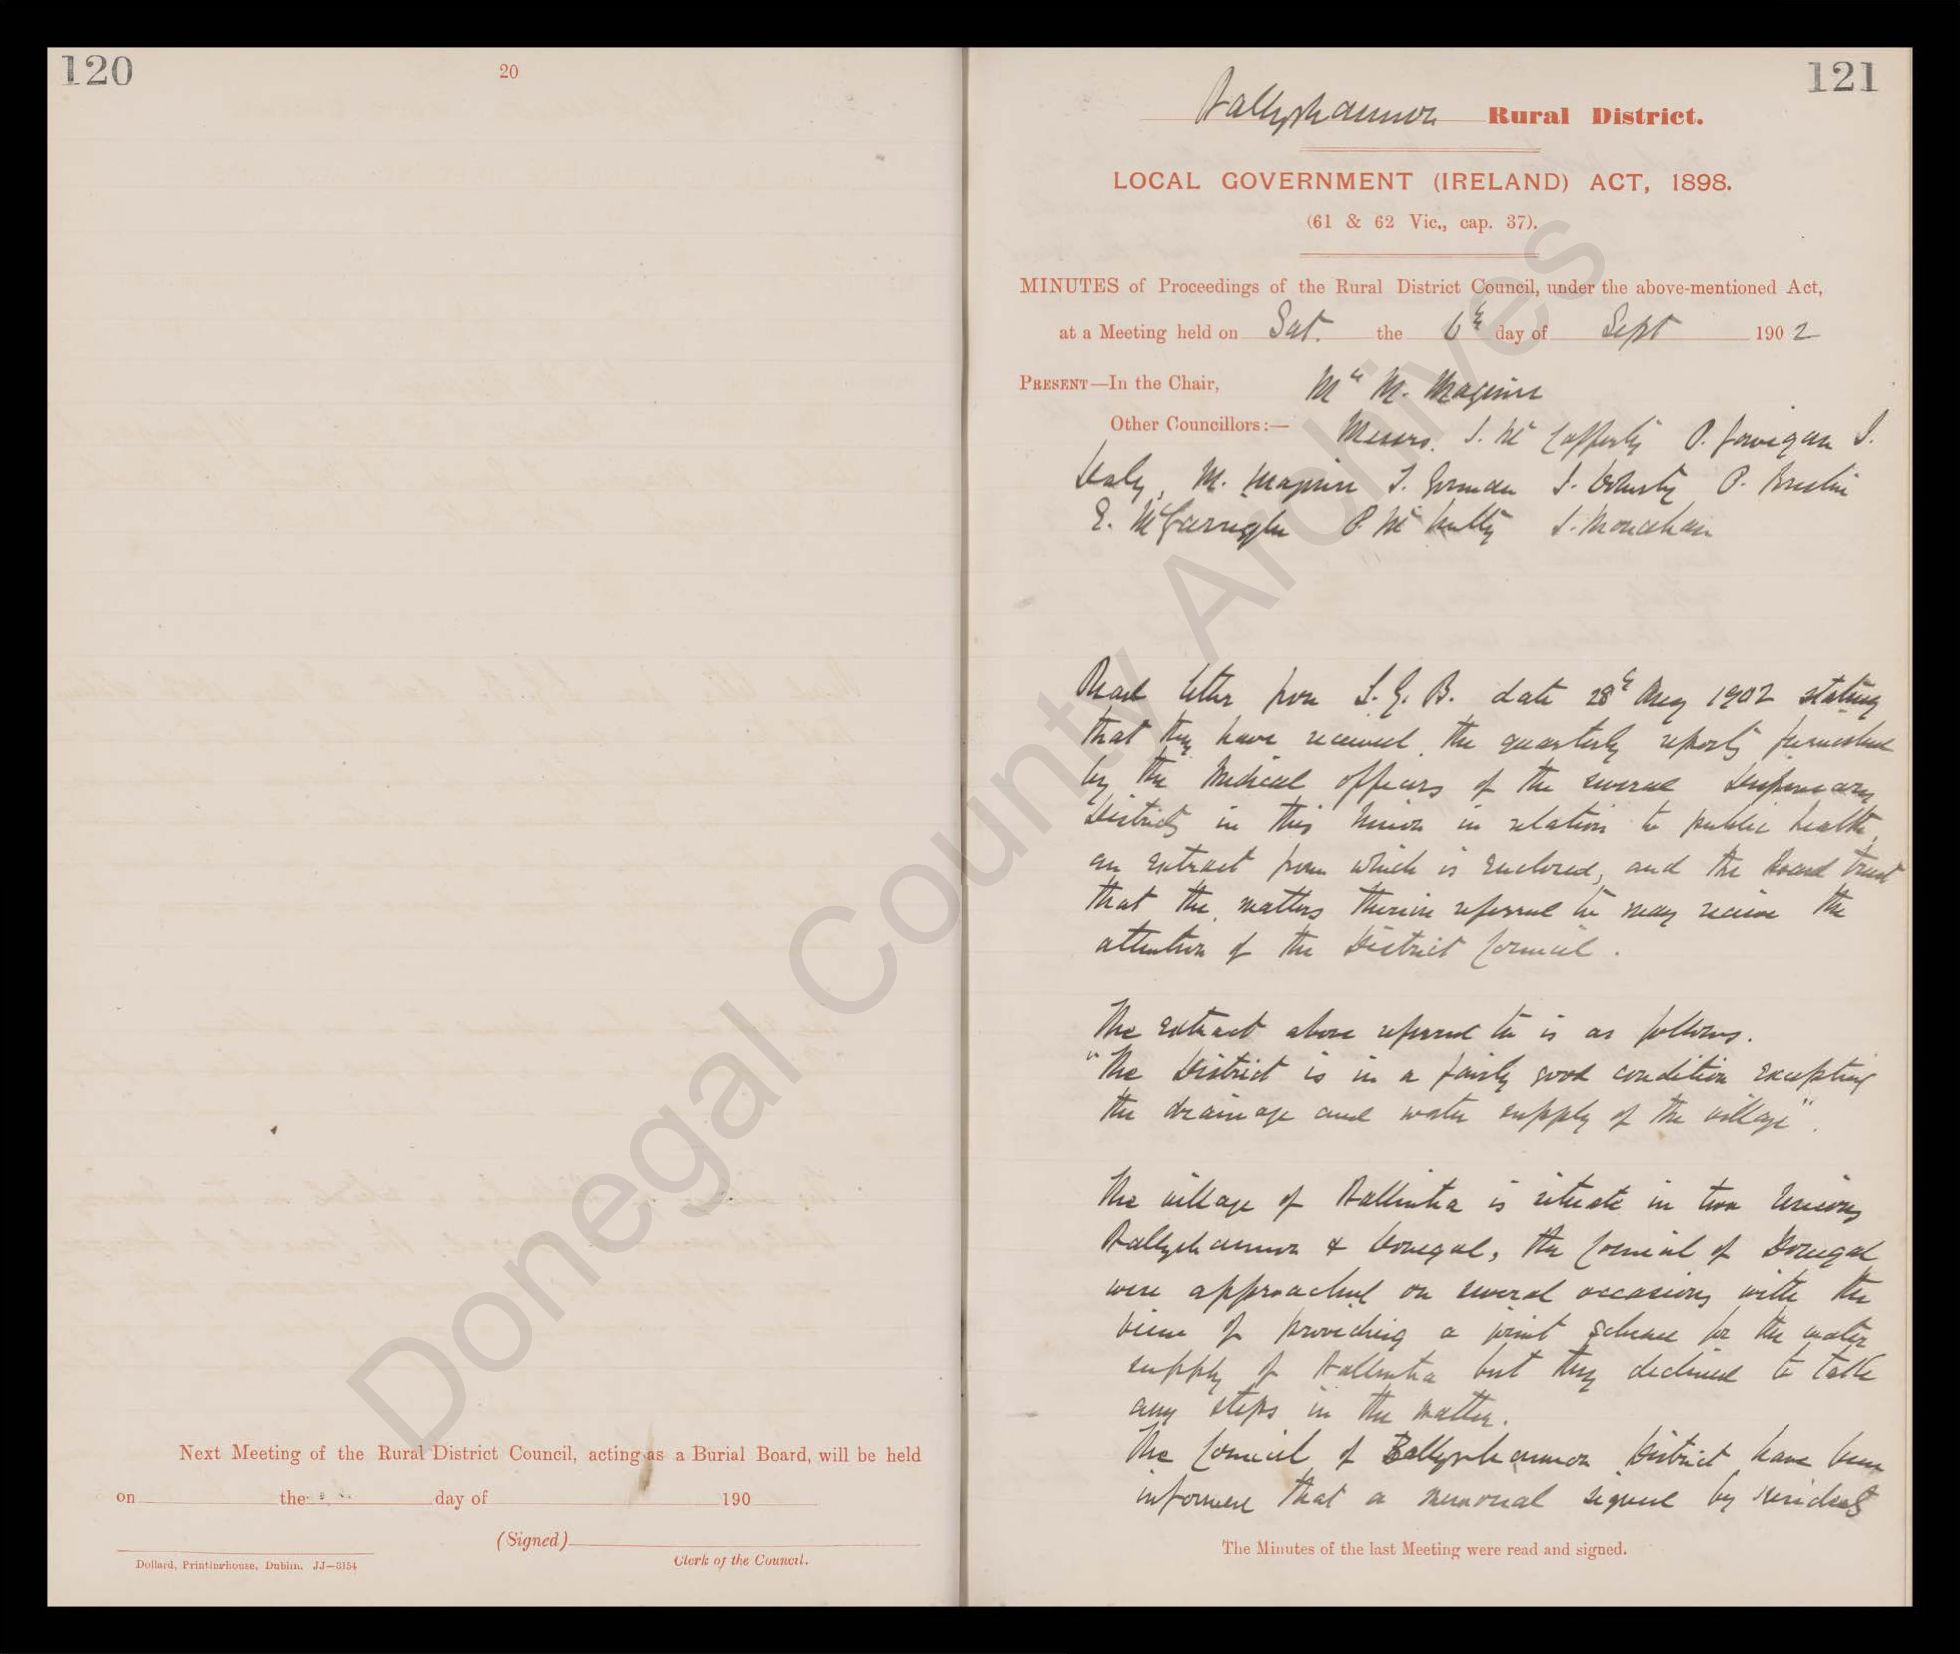 120
20
Next Meeting of the Rural District Council, acting as a Burial Board, will be held
on the day of 190
(Signed)
Clerk of the Council.
Dollard, Printinghouse, Dublin. JJ—3154
121
Ballyshannon Rural District.
LOCAL GOVERNMENT (IRELAND) ACT, 1898.
(61 & 62 Vic., cap. 37).
MINUTES of Proceedings of the Rural District Council, under the above-mentioned Act,
at a Meeting held on Sat. the 6th day of Sept 1902
PRESENT—In the Chair, Mr M. Maginn
Other Councillors:— Messrs. J. McCafferty P. J.
Daly, M. Maginn T. Gorman J. P. Breslin
E. McGarrigle P. McNulty J. Monahan
Read letter from L.G.B. date 28th Aug 1902 stating
that they have received the quarterly reports furnished
by the Medical officers of the several Dispensary
Districts in this Union in relation to public health,
an extract from which is enclosed, and the Board trust
that the matters therein referred to may receive the
attention of the District Council.
The extract above referred to is as follows.
"The District is in a fairly good condition excepting
the drainage and water supply of the village".
The village of Ballintra is situate in two Unions
Ballyshannon & Donegal, the Council of Donegal
were approached on several occasions with the
view of providing a joint scheme for the water
supply of Ballintra but they declined to take
any steps in the matter.
The Council of Ballyshannon District have been
informed that a memorial signed by residents
The Minutes of the last Meeting were read and signed.
Donegal County Archives